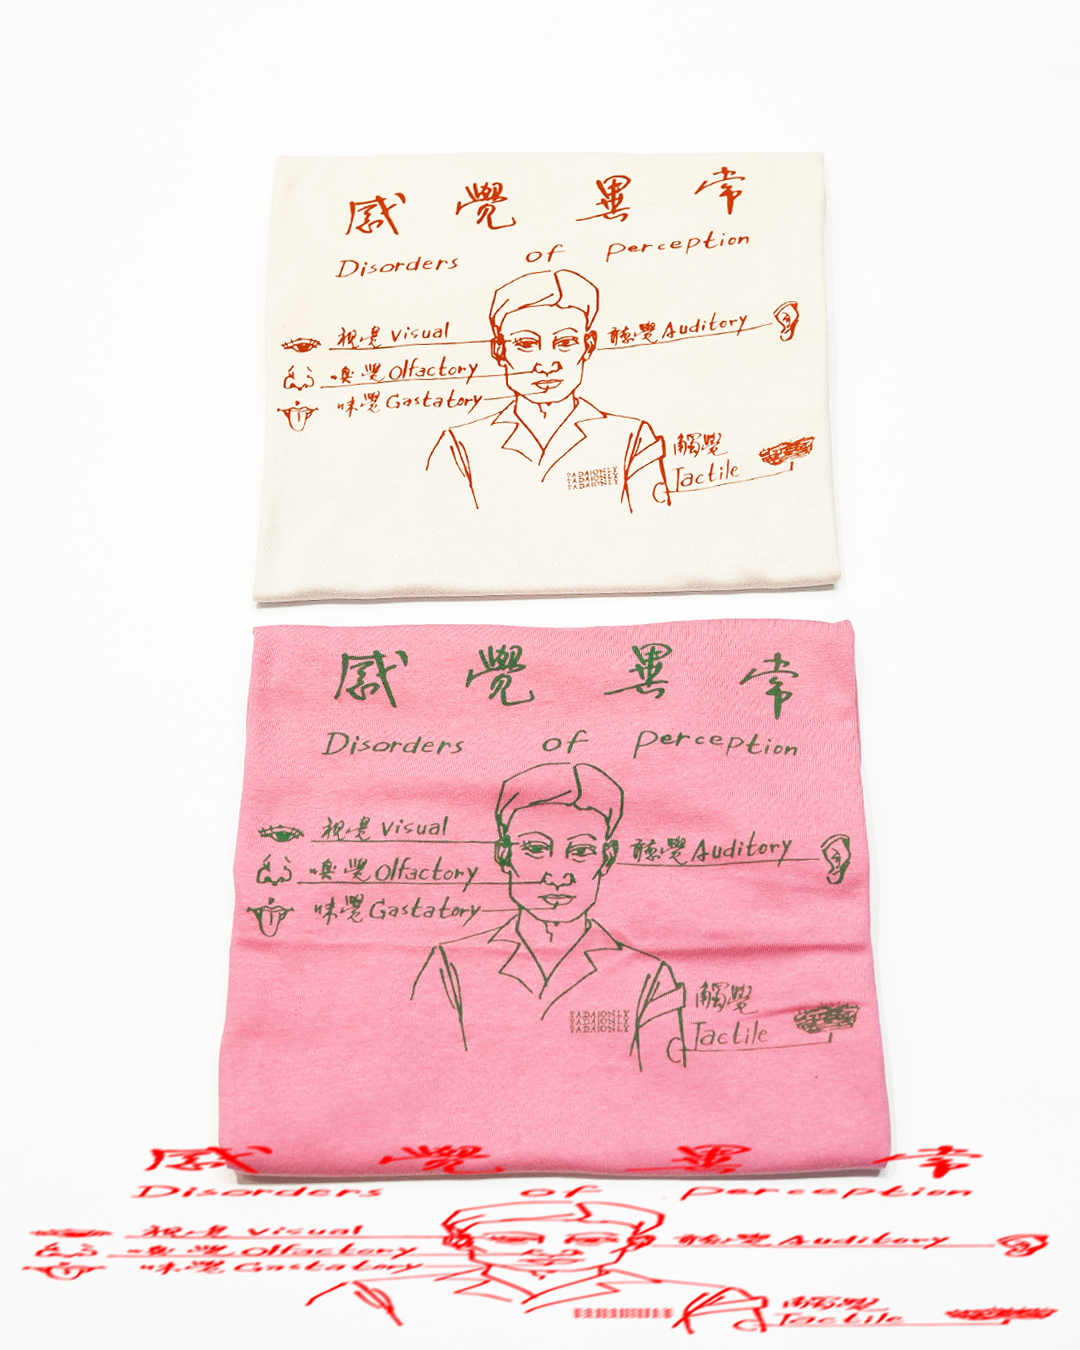 感覺異常
Disorders of perception
視覺 visual
聽覺 Auditory
嗅覺 Olfactory
味覺 Gastatory
觸覺
Tactile
TADAIONLY
TADAIONLY
TADAIONLY
感覺異常
Disorders of perception
視覺 visual
聽覺 Auditory
嗅覺 Olfactory
味覺 Gastatory
觸覺
Tactile
TADAIONLY
TADAIONLY
TADAIONLY
感覺異常
Disorders of perception
視覺 visual
聽覺 Auditory
嗅覺 Olfactory
味覺 Gastatory
觸覺
Tactile